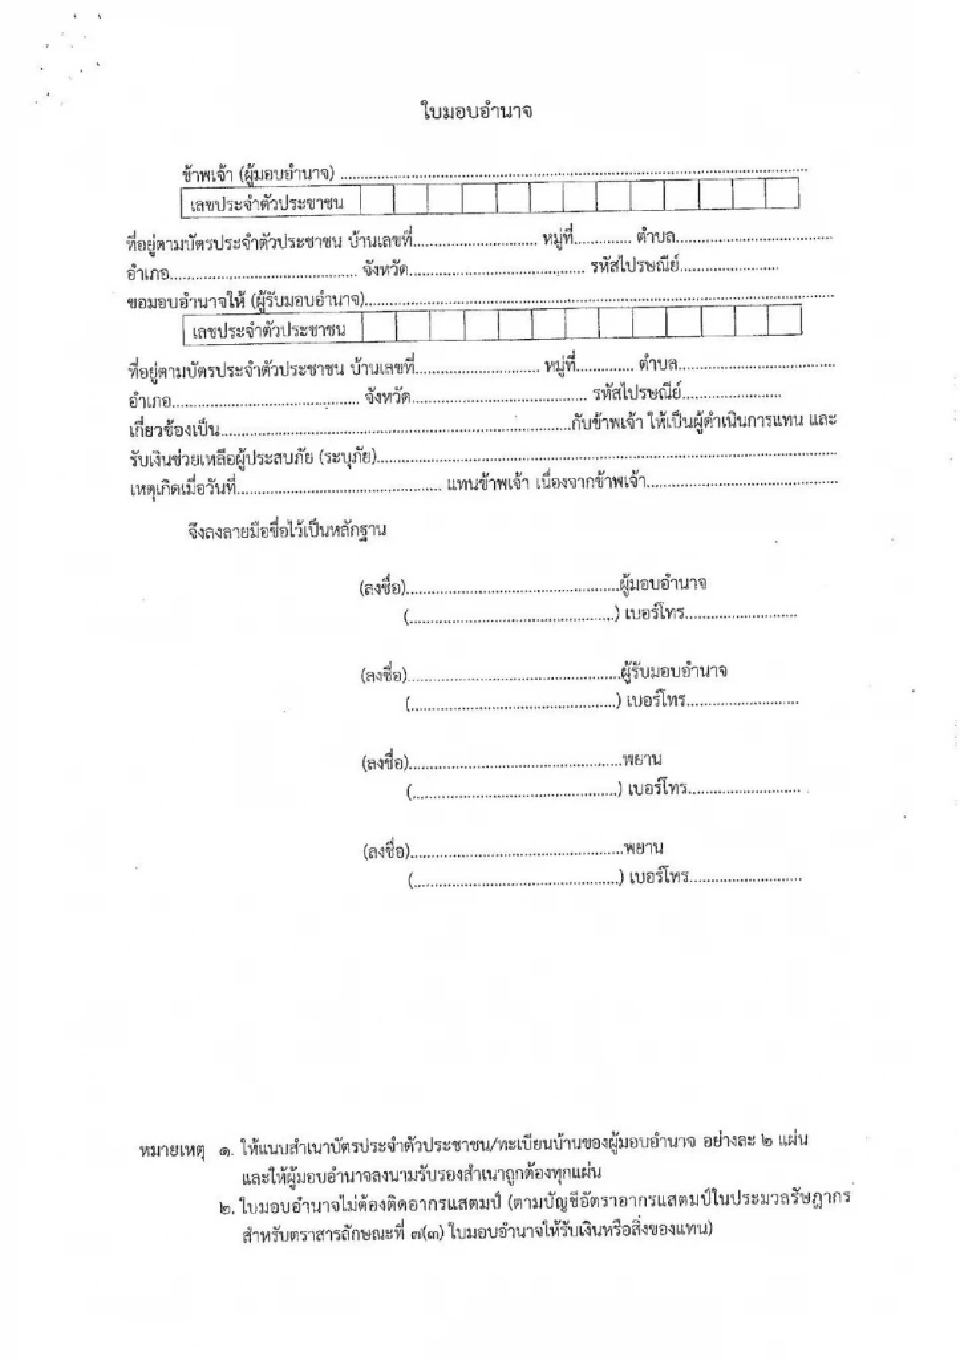 ใบมอบอำนาจ
ข้าพเจ้า (ผู้มอบอำนาจ) ....................................................................................
เลขประจำตัวประชาชน
ที่อยู่ตามบัตรประจำตัวประชาชน บ้านเลขที่............................ หมู่ที่............. ตำบล...................................
อำเภอ.......................................... จังหวัด........................................ รหัสไปรษณีย์......................
ขอมอบอำนาจให้ (ผู้รับมอบอำนาจ)....................................................................................
เลขประจำตัวประชาชน
ที่อยู่ตามบัตรประจำตัวประชาชน บ้านเลขที่............................ หมู่ที่............. ตำบล...................................
อำเภอ.......................................... จังหวัด........................................ รหัสไปรษณีย์......................
เกี่ยวข้องเป็น................................................................................กับข้าพเจ้า ให้เป็นผู้ดำเนินการแทน และ
รับเงินช่วยเหลือผู้ประสบภัย (ระบุภัย)....................................................................................
เหตุเกิดเมื่อวันที่.............................................. แทนข้าพเจ้า เนื่องจากข้าพเจ้า...........................................
จึงลงลายมือชื่อไว้เป็นหลักฐาน
(ลงชื่อ)................................................ผู้มอบอำนาจ
(...............................................) เบอร์โทร.........................
(ลงชื่อ)................................................ผู้รับมอบอำนาจ
(...............................................) เบอร์โทร.........................
(ลงชื่อ)................................................พยาน
(...............................................) เบอร์โทร.........................
(ลงชื่อ)................................................พยาน
(...............................................) เบอร์โทร.........................
หมายเหตุ ๑. ให้แนบสำเนาบัตรประจำตัวประชาชน/ทะเบียนบ้านของผู้มอบอำนาจ อย่างละ ๒ แผ่น
และให้ผู้มอบอำนาจลงนามรับรองสำเนาถูกต้องทุกแผ่น
๒. ใบมอบอำนาจไม่ต้องติดอากรแสตมป์ (ตามบัญชีอัตราอากรแสตมป์ในประมวลรัษฎากร
สำหรับตราสารลักษณะที่ ๗(๓) ใบมอบอำนาจให้รับเงินหรือสิ่งของแทน)